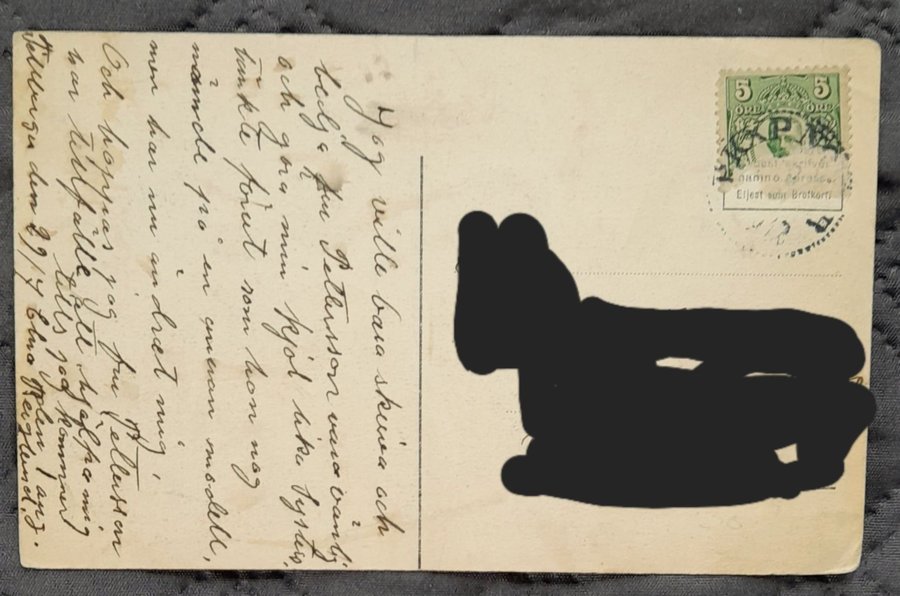 Jag ville bara skriva och
bedja fru Petterson vara vänlig
och göra min kjol lika Systers,
tänkte förut som hon nog
nämnde på en annan modell,
men har nu ändrat mig,
Och hoppas jag fru Petterson
har tillfälle att hjälpa mig
tills jag kommer
den 29/7 Elna 1 aug.
Berglund.
5 5
ÖRE ÖRE
namn o adress
Eljest som Brefkort